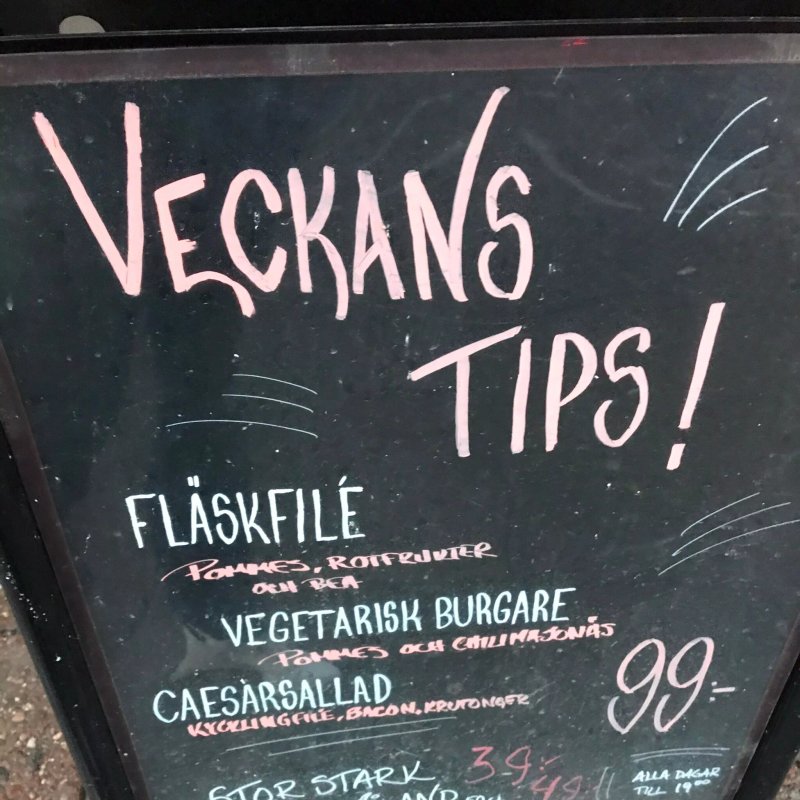 VECKANS
TIPS!
FLÄSKFILÉ
POMMES, ROTFRUKTER
OCH BEA
VEGETARISK BURGARE
POMMES OCH CHILIMAJONÄS
CAESARSALLAD
KYCKLINGFILÉ, BACON, KRUTONGER
99:-
STOR STARK 39:-
49:-
ALLA DAGAR
TILL 19⁰⁰